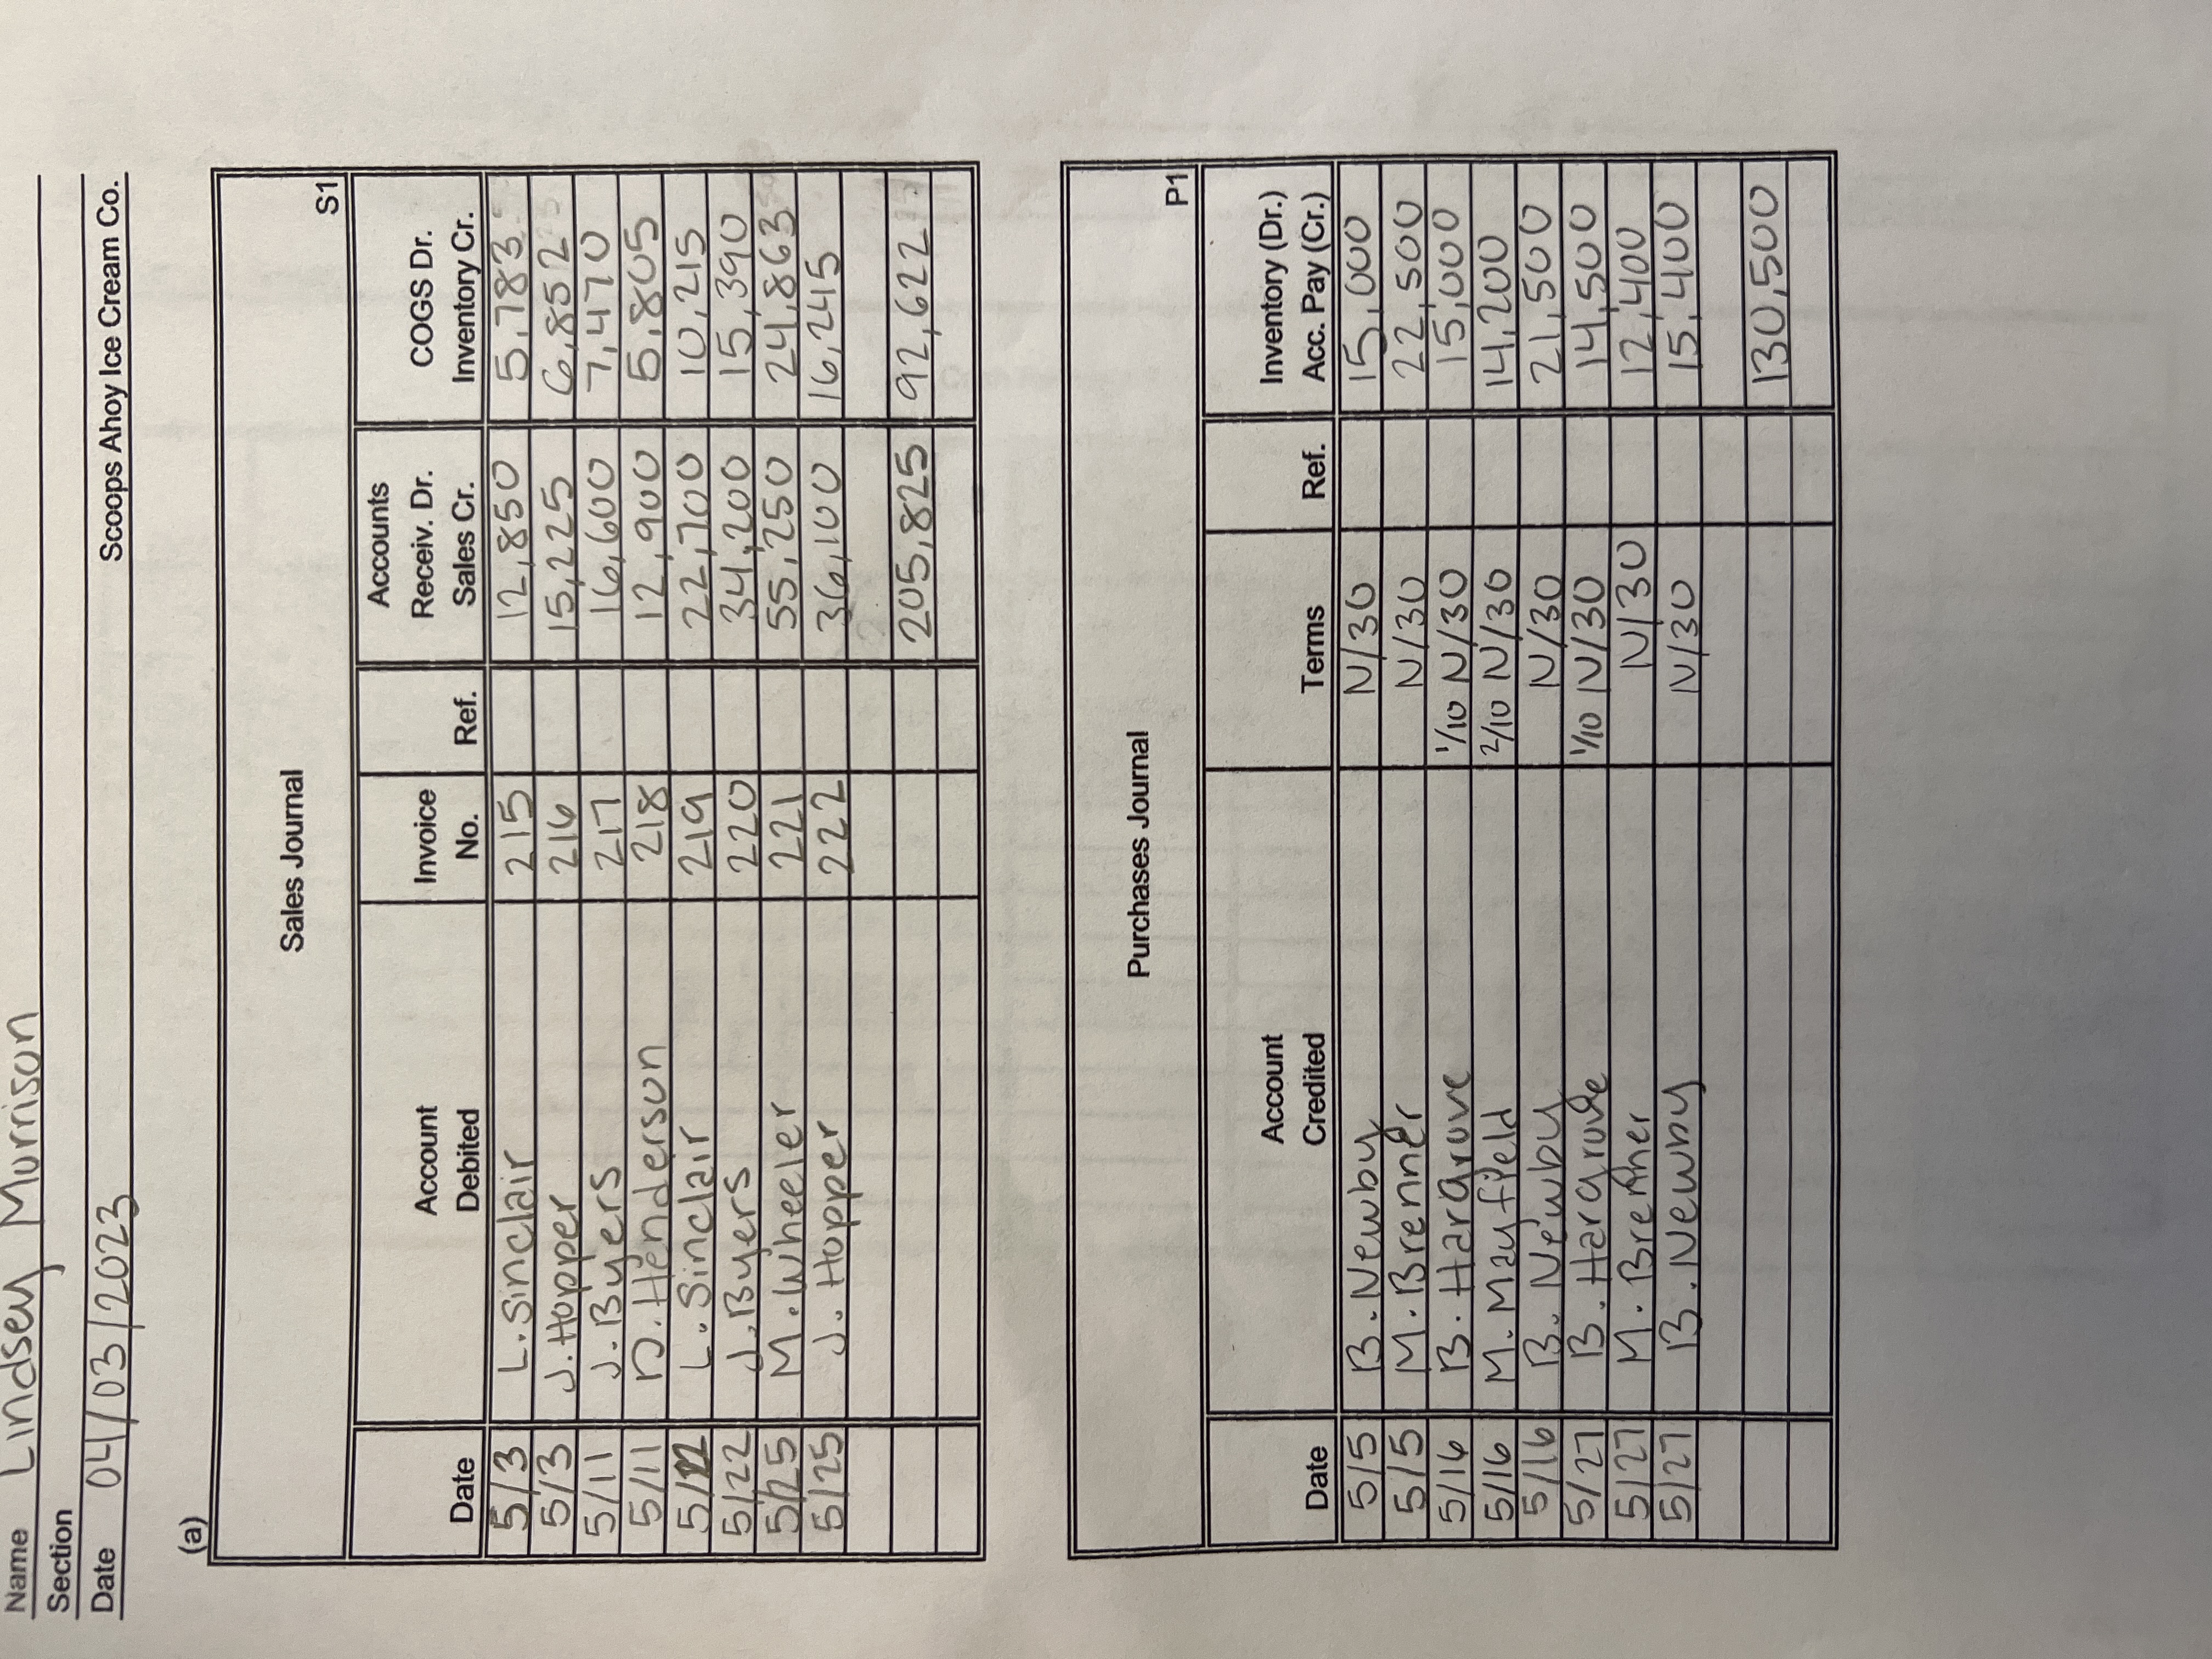 Name Lindsey Morrison
Section
Date 04/03/2023 Scoops Ahoy Ice Cream Co.
(a)
Sales Journal S1
Date Account Debited Invoice No. Ref. Accounts Receiv. Dr. Sales Cr. COGS Dr. Inventory Cr.
5/3 L. Sinclair 215 12,850 5,783
5/3 J. Hopper 216 15,225 6,852
5/11 J. Byers 217 16,600 7,470
5/11 D. Henderson 218 12,900 5,805
5/22 L. Sinclair 219 22,700 10,215
5/22 J. Byers 220 34,200 15,390
5/25 M. Wheeler 221 55,250 24,863
5/25 J. Hopper 222 36,100 16,245
205,825 92,622
Purchases Journal P1
Date Account Credited Terms Ref. Inventory (Dr.) Acc. Pay (Cr.)
5/5 B. Newby N/30 15,000
5/5 M. Brenner N/30 22,500
5/16 B. Hargrove 1/10 N/30 15,000
5/16 M. Mayfield 2/10 N/30 14,200
5/16 B. Newby N/30 21,500
5/27 B. Hargrove 1/10 N/30 14,500
5/27 M. Brenner N/30 12,400
5/27 B. Newby N/30 15,400
130,500